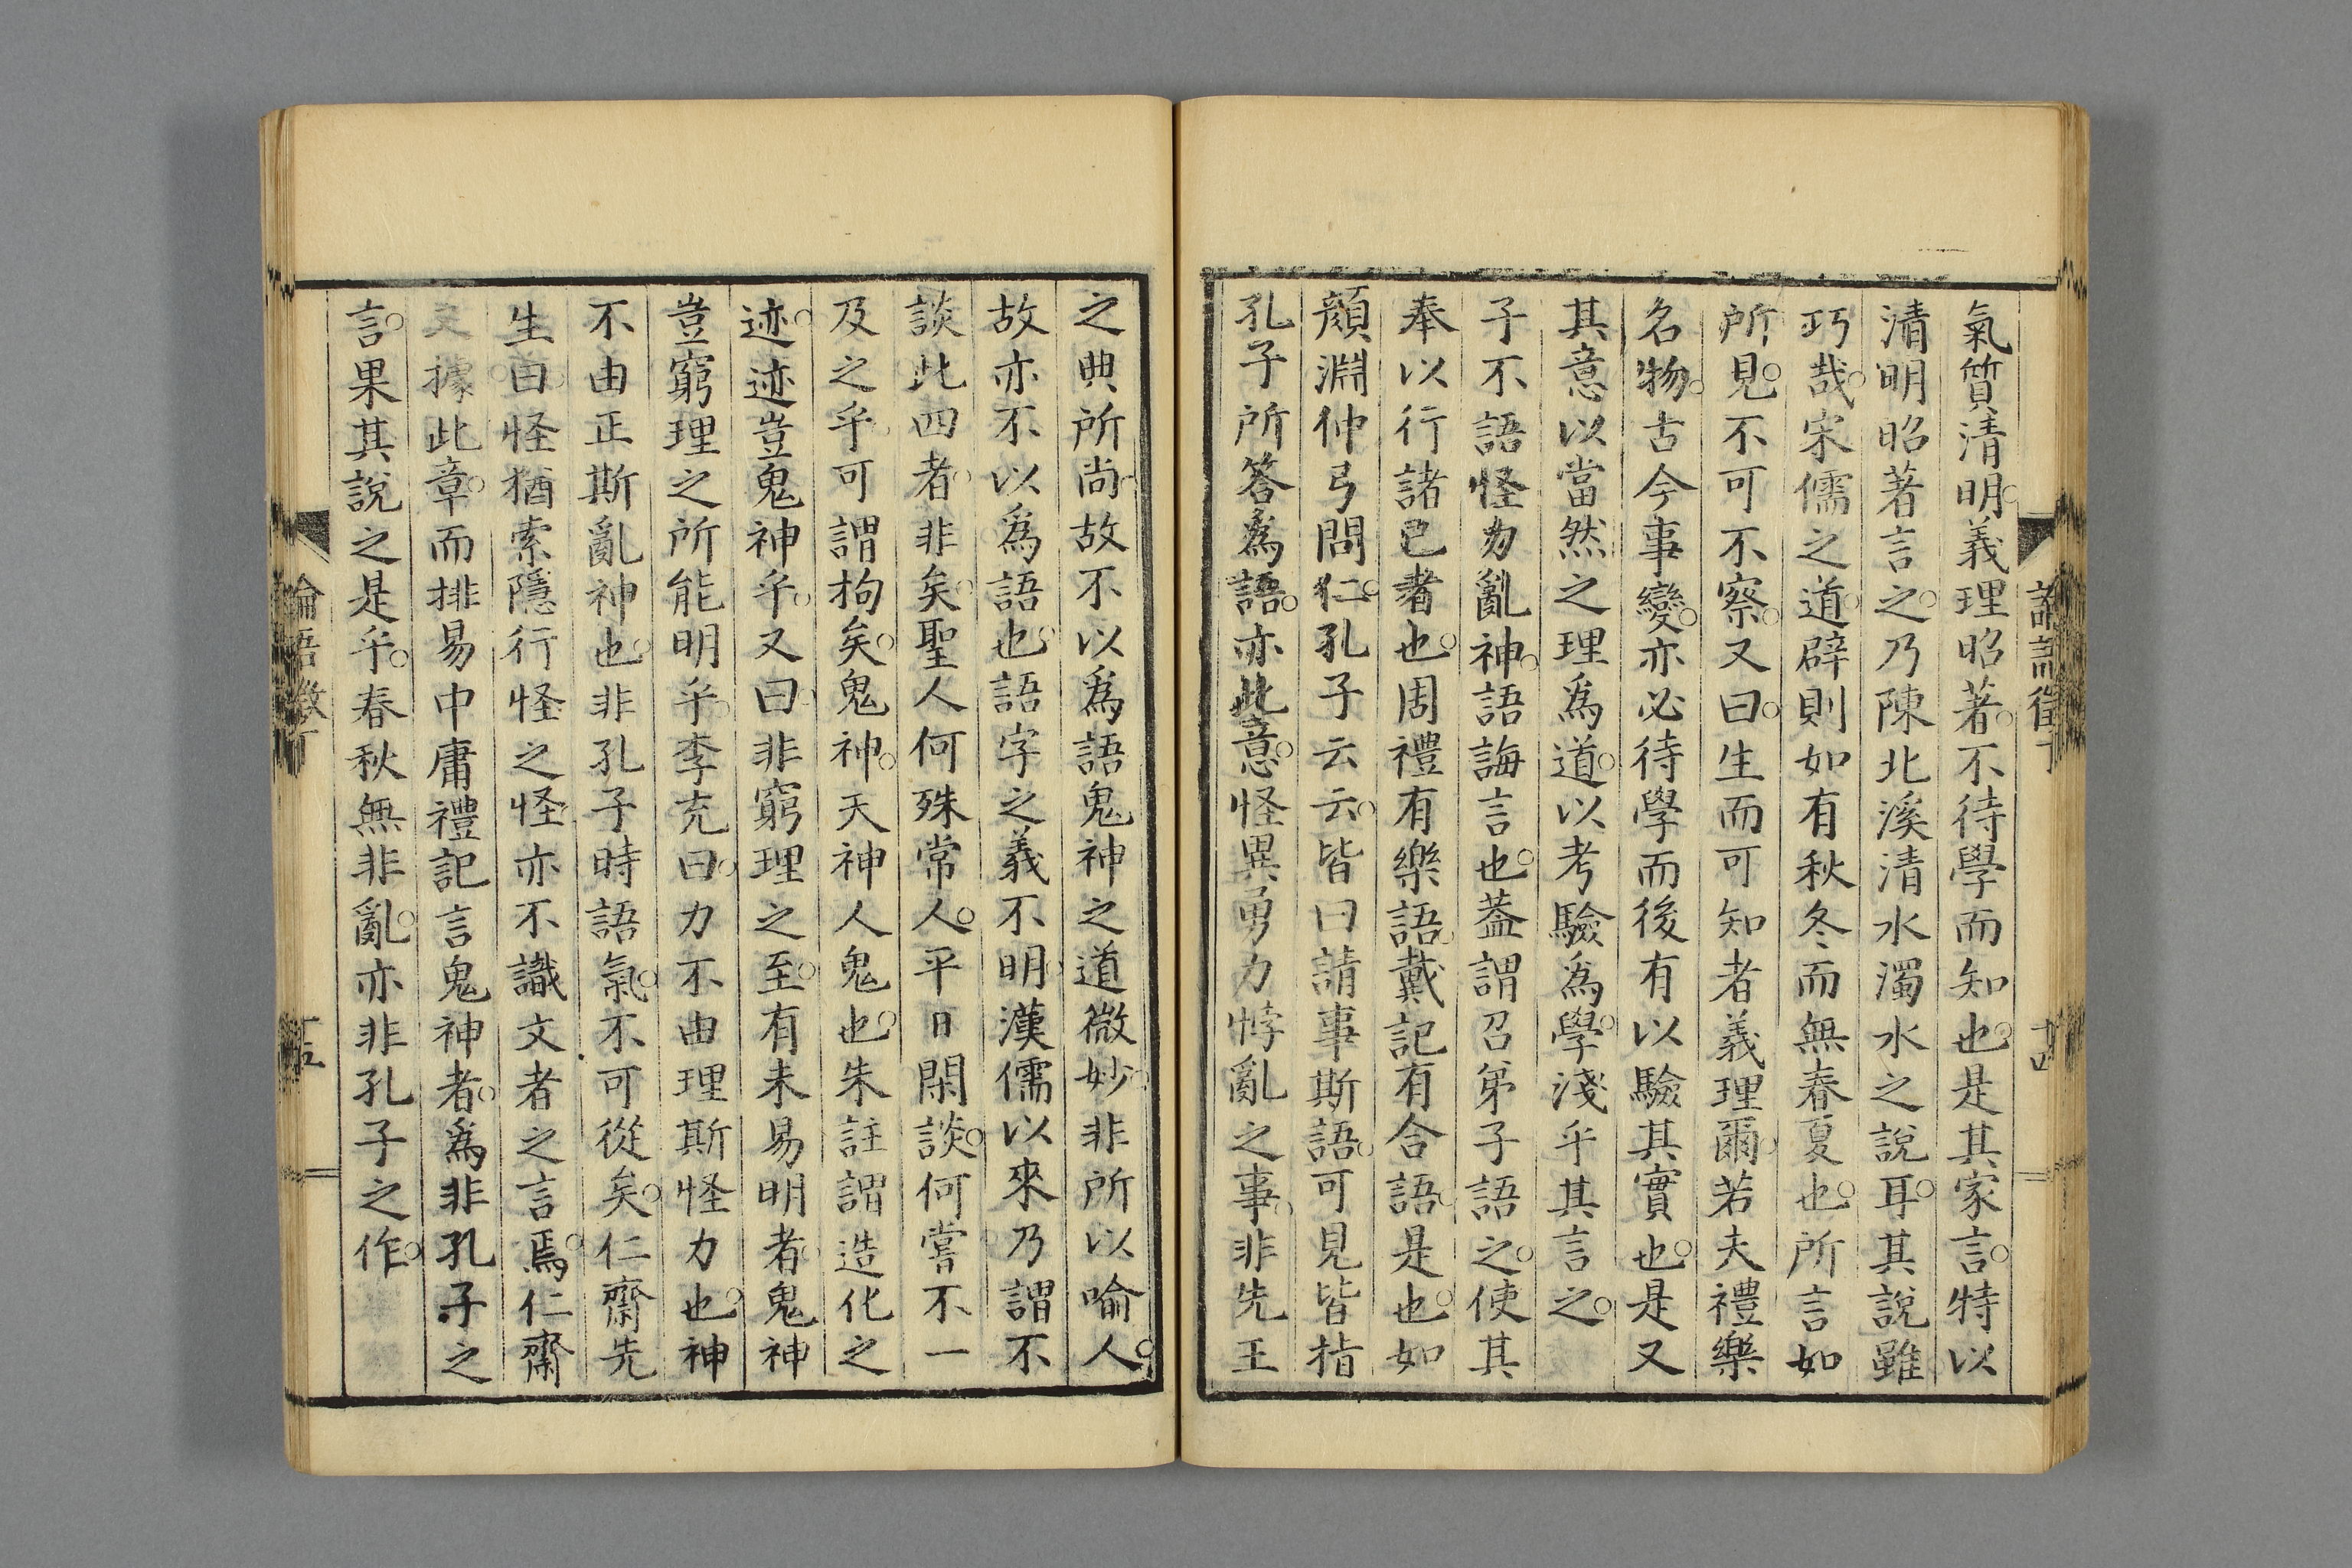 氣質清明。義理昭著。不待學而知也。是其家言。特以
清明昭著言之。乃陳北溪清水濁水之說耳。其說雖
巧哉。宋儒之道。辟則如有秋冬而無春夏也。所言如
所見。不可不察。又曰。生而可知者義理爾。若夫禮樂
名物。古今事變。亦必待學而後有以驗其實也。是又
其意以當然之理爲道。以考驗爲學。淺乎其言之。
子不語怪力亂神。語誨言也。蓋謂召弟子語之。使其
奉以行諸己者也。周禮有樂語。戴記有合語。是也。如
顏淵仲弓問仁。孔子云云。皆曰請事斯語。可見皆指
孔子所答爲語。亦此意。怪異勇力悖亂之事。非先王
之典所尚。故不以爲語。鬼神之道微妙。非所以喻人。
故亦不以爲語也。語字之義不明。漢儒以來乃謂不
談此四者。非矣。聖人何殊常人。平日閑談。何嘗不一
及之乎。可謂拘矣。鬼神。天神人鬼也。朱註謂造化之
迹。迹豈鬼神乎。又曰。非窮理之至。有未易明者。鬼神
豈窮理之所能明乎。李充曰。力不由理斯怪力也。神
不由正斯亂神也。非孔子時語氣。不可從矣。仁齋先
生曰。怪猶索隱行怪之怪。亦不識文者之言焉。仁齋
又據此章。而排易中庸禮記言鬼神者。爲非孔子之
言。果其說之是乎。春秋無非亂。亦非孔子之作。
論語徵丁
十五